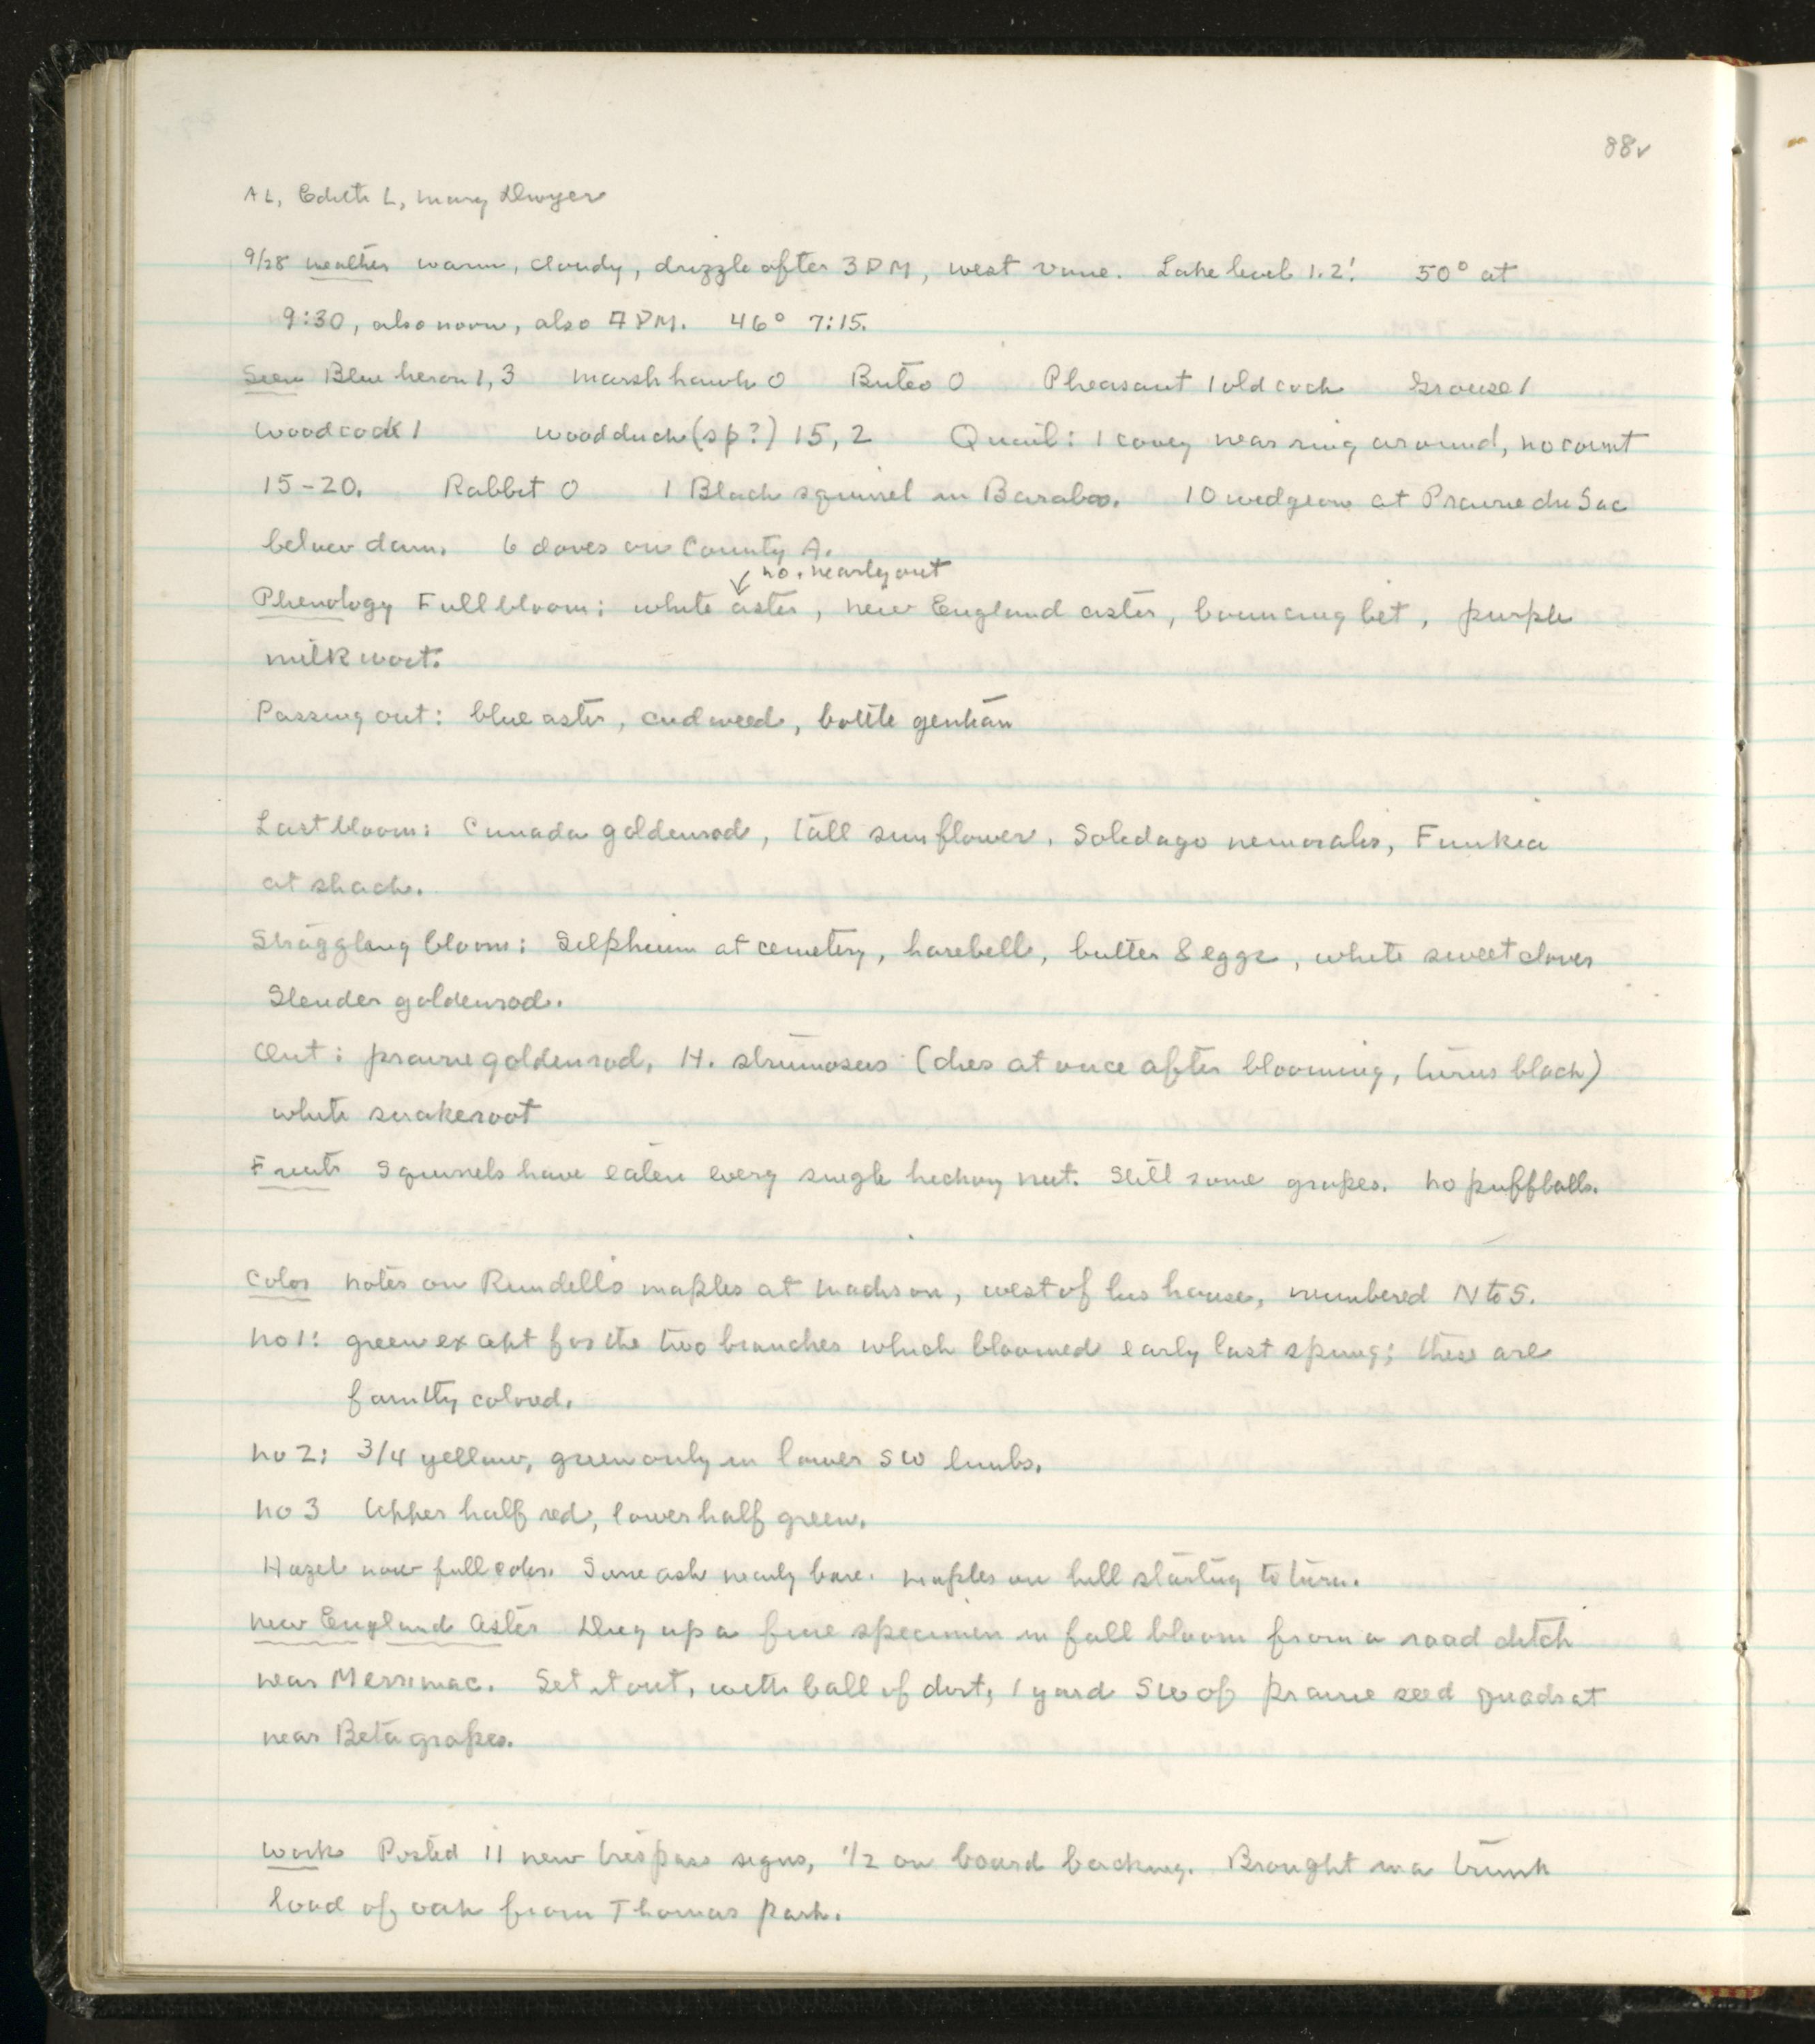 88v
AL, Edith L, Mary Dwyer
9/28 Weather warm, cloudy, drizzle after 3 PM, west vane. Lake level 1.2'. 50° at
9:30, also noon, also 7 PM. 46° 7:15.
Seen Blue heron 1, 3 Marsh hawk 0 Buteo 0 Pheasant 1 old cock Grouse 1
Woodcock 1 Woodduck (sp?) 15, 2 Quail: 1 covey near ring around, no count
15-20. Rabbit 0 1 Black squirrel in Baraboo. 10 widgeon at Prairie du Sac
below dam. 6 doves on County A.
no. nearly out
Phenology Full bloom: white aster, New England aster, bouncing bet, purple
milkwort.
Passing out: blue aster, cudweed, bottle gentian
Last bloom: Canada goldenrod, tall sunflower, Solidago nemoralis, Funkia
at shack.
Straggling bloom: Silphium at cemetery, harebell, butter & eggs, white sweet clover
Slender goldenrod.
Out: prairie goldenrod, H. strumosus (dies at once after blooming, turns black)
white snakeroot
Fruit Squirrels have eaten every single hickory nut. Still some grapes. No puffballs.
Color notes on Rundell's maples at Madison, west of his house, numbered N to S.
No 1: green except for the two branches which bloomed early last spring; these are
faintly colored.
No 2: 3/4 yellow, green only in lower SW limbs.
No 3 Upper half red, lower half green.
Hazel now full color. Some ash nearly bare. Maples on hill starting to turn.
New England Aster Dug up a fine specimen in full bloom from a road ditch
near Merrimac. Set it out, with ball of dirt, 1 yard SW of prairie seed quadrat
near Beta grapes.
Work Posted 11 new trespass signs, 1/2 on board backing. Brought in a trunk
load of oak from Thomas park.